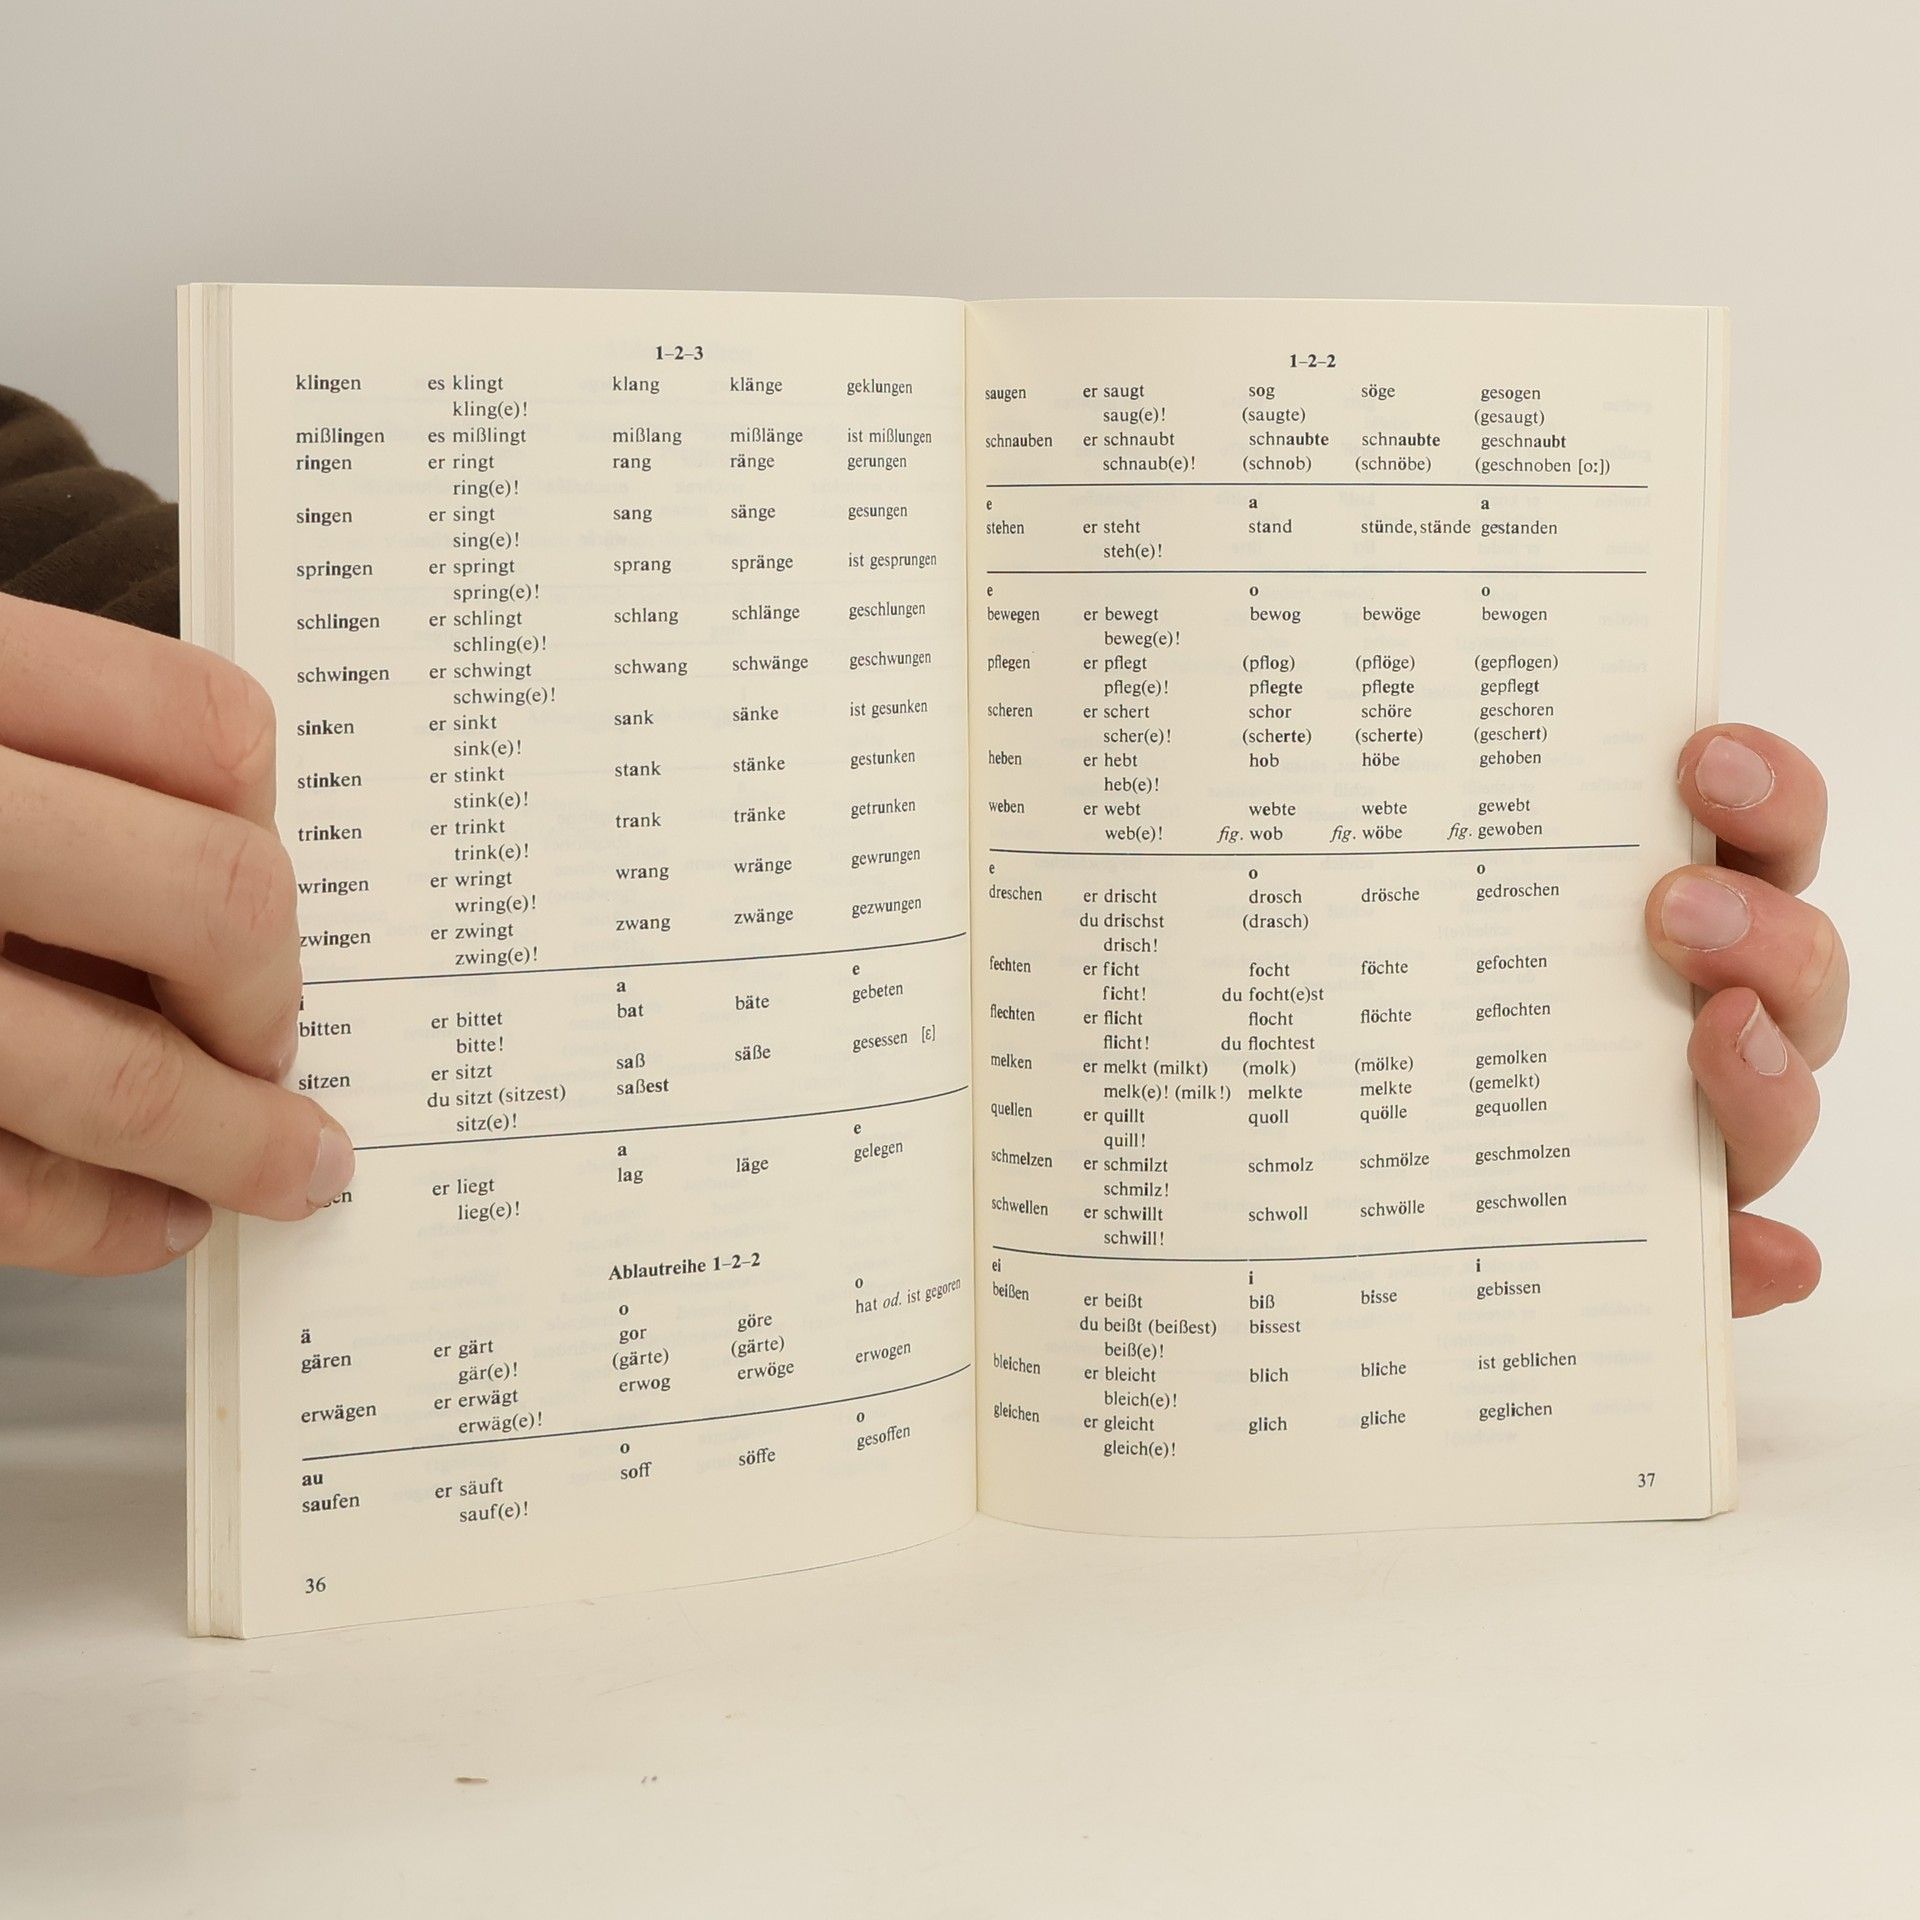 1–2–3
klingen es klingt klang klänge geklungen
kling(e)!
mißlingen es mißlingt mißlang mißlänge ist mißlungen
ringen er ringt rang ränge gerungen
ring(e)!
singen er singt sang sänge gesungen
sing(e)!
springen er springt sprang spränge ist gesprungen
spring(e)!
schlingen er schlingt schlang schlänge geschlungen
schling(e)!
schwingen er schwingt schwang schwänge geschwungen
schwing(e)!
sinken er sinkt sank sänke ist gesunken
sink(e)!
stinken er stinkt stank stänke gestunken
stink(e)!
trinken er trinkt trank tränke getrunken
trink(e)!
wringen er wringt wrang wränge gewrungen
wring(e)!
zwingen er zwingt zwang zwänge gezwungen
zwing(e)!
i a e
bitten er bittet bat bäte gebeten
bitte!
sitzen er sitzt saß säße gesessen [ɛ]
du sitzt (sitzest) saßest
sitz(e)!
a e
er liegt lag läge gelegen
lieg(e)!
Ablautreihe 1–2–2
ä o o
gären er gärt gor göre hat od. ist gegoren
gär(e)! (gärte) (gärte)
erwägen er erwägt erwog erwöge erwogen
erwäg(e)!
au o o
saufen er säuft soff söffe gesoffen
sauf(e)!
36
1–2–2
saugen er saugt sog söge gesogen
saug(e)! (saugte) (gesaugt)
schnauben er schnaubt schnaubte schnaubte geschnaubt
schnaub(e)! (schnob) (schnöbe) (geschnoben [o:])
e a a
stehen er steht stand stünde, stände gestanden
steh(e)!
e o o
bewegen er bewegt bewog bewöge bewogen
beweg(e)!
pflegen er pflegt (pflog) (pflöge) (gepflogen)
pfleg(e)! pflegte pflegte gepflegt
scheren er schert schor schöre geschoren
scher(e)! (scherte) (scherte) (geschert)
heben er hebt hob höbe gehoben
heb(e)!
weben er webt webte webte gewebt
web(e)! fig. wob fig. wöbe fig. gewoben
e o o
dreschen er drischt drosch drösche gedroschen
du drischst (drasch)
drisch!
fechten er ficht focht föchte gefochten
ficht! du focht(e)st
flechten er flicht flocht flöchte geflochten
flicht! du flochtest
melken er melkt (milkt) (molk) (mölke) gemolken
melk(e)! (milk!) melkte melkte (gemelkt)
quellen er quillt quoll quölle gequollen
quill!
schmelzen er schmilzt schmolz schmölze geschmolzen
schmilz!
schwellen er schwillt schwoll schwölle geschwollen
schwill!
ei i i
beißen er beißt biß bisse gebissen
du beißt (beißest) bissest
beiß(e)!
bleichen er bleicht blich bliche ist geblichen
bleich(e)!
gleichen er gleicht glich gliche geglichen
gleich(e)!
37